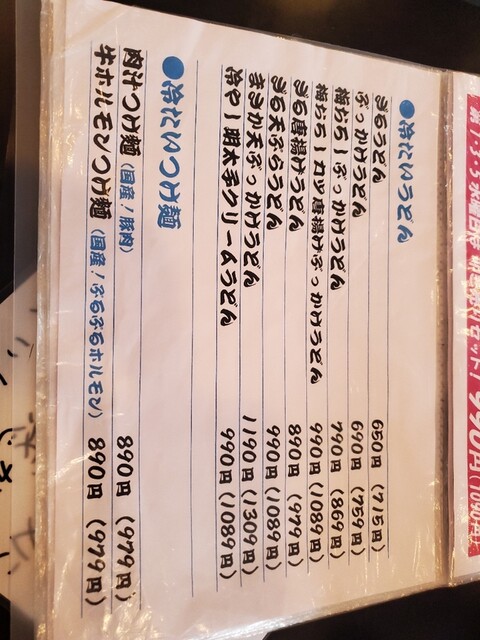 ●冷たいうどん
ざるうどん 650円（715円）
ぶっかけうどん 690円（759円）
梅おろしぶっかけうどん 790円（869円）
梅おろしカツ唐揚げぶっかけうどん 990円（1089円）
ざる唐揚げうどん 890円（979円）
ざる天ぷらうどん 990円（1089円）
まさか天ぶっかけうどん 1190円（1309円）
冷やし明太子クリームうどん 990円（1089円）
●冷たいつけ麺
肉汁つけ麺（国産！豚肉） 890円（979円）
牛ホルモンつけ麺（国産！ぷるぷるホルモン） 890円（979円）
第1・3・5水曜日は セット！ 990円（1090円）